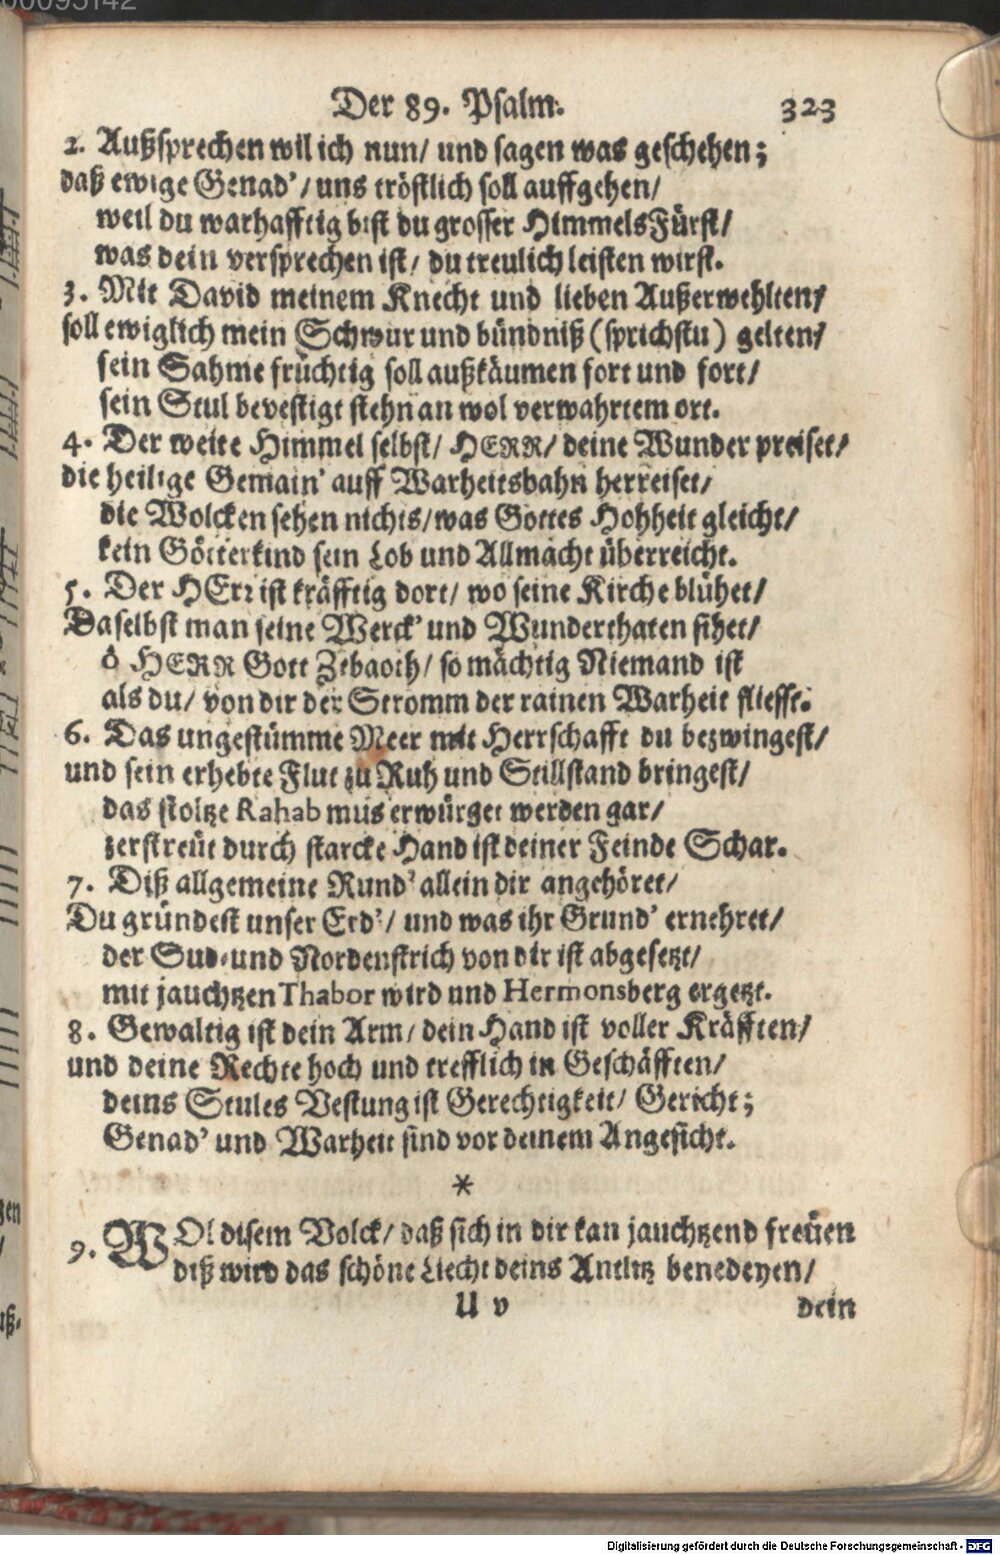 00095142
Der 89. Psalm. 323
2. Außsprechen wil ich nun/ und sagen was geschehen;
daß ewige Genad’/ uns tröstlich soll auffgehen/
weil du warhafftig bist du grosser HimmelsFürst/
was dein versprechen ist/ du treulich leisten wirst.
3. Mit David meinem Knecht und lieben Außerwehlten/
soll ewiglich mein Schwur und bündniß (sprichstu) gelten/
sein Sahme früchtig soll außkäumen fort und fort/
sein Stul bevestigt stehn an wol verwahrtem ort.
4. Der weite Himmel selbst/ HERR/ deine Wunder preiset/
die heilige Gemain’ auff Warheitsbahn herreiset/
die Wolcken sehen nichts/ was Gottes Hohheit gleicht/
kein Götterkind sein Lob und Allmacht überreicht.
5. Der HErr ist kräfftig dort/ wo seine Kirche blühet/
Daselbst man seine Werck’ und Wunderthaten sihet/
ô HERR Gott Zebaoth/ so mächtig Niemand ist
als du/ von dir der Stromm der rainen Warheit fliesst.
6. Das ungestümme Meer mit Herrschafft du bezwingest/
und sein erhebte Flut zu Ruh und Stillstand bringest/
das stoltze Rahab mus erwürget werden gar/
zerstreüt durch starcke Hand ist deiner Feinde Schar.
7. Diß allgemeine Rund’ allein dir angehöret/
Du gründest unser Erd’/ und was ihr Grund’ ernehret/
der Sud- und Nordenstrich von dir ist abgesetzt/
mit jauchtzen Thabor wird und Hermonsberg ergetzt.
8. Gewaltig ist dein Arm/ dein Hand ist voller Kräfften/
und deine Rechte hoch und trefflich in Geschäfften/
deins Stules Vestung ist Gerechtigkeit/ Gericht;
Genad’ und Warheit sind vor deinem Angesicht.
*
9. WOl disem Volck/ daß sich in dir kan jauchtzend freüen
diß wird das schöne Liecht deins Antlitz benedeyen/
U v dein
Digitalisierung gefördert durch die Deutsche Forschungsgemeinschaft - DFG